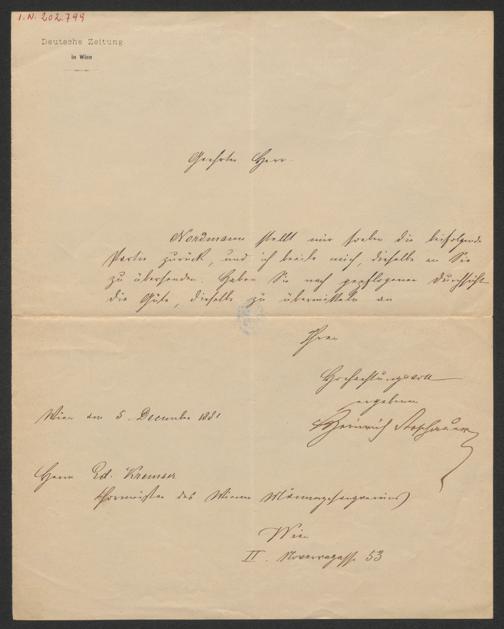 I.N. 202.799
Deutsche Zeitung
in Wien
Geehrter Herr
Nordmann stellt mir soeben die beifolgende
Partie zurück, und ich beeile mich, dieselbe an Sie
zu übersenden. Haben Sie nach gepflogener Durchsicht
die Güte, dieselbe zu übermitteln an
Ihren
Hochachtungsvoll
ergebenen
Heinrich
Wien am 5. December 1881
Herrn Ed. Kremser
Chormeister des Wiener Männergesangvereins
Wien
II. Novaragasse 53